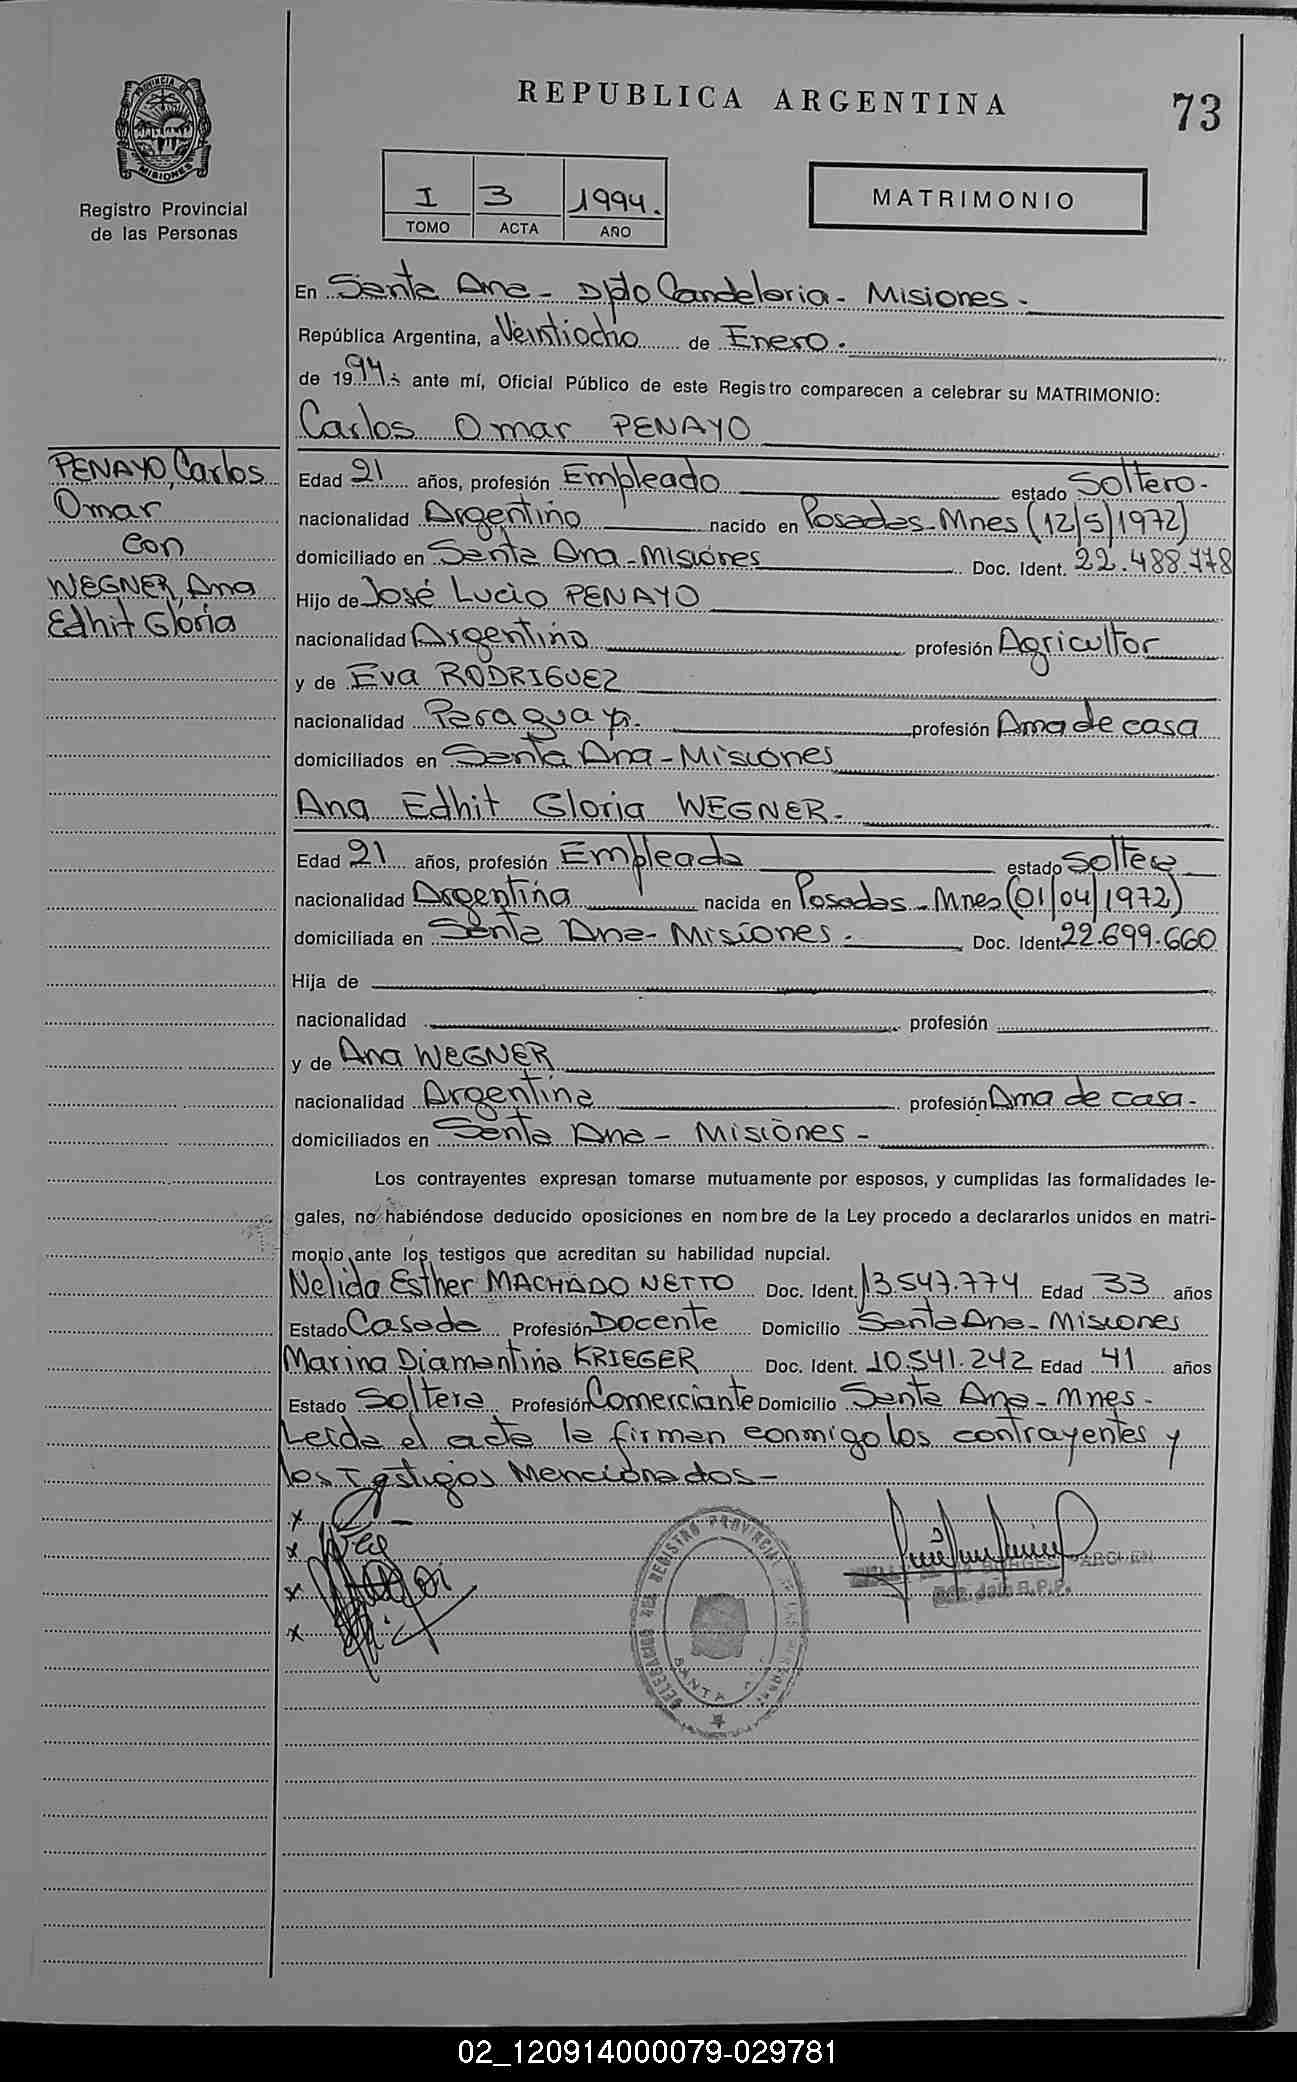 PROVINCIA DE
MISIONES
Registro Provincial
de las Personas
REPUBLICA ARGENTINA
73
I 3 1994.
TOMO ACTA AÑO
MATRIMONIO
En Santa Ana - Dpto Candelaria - Misiones -
República Argentina, a Veintiocho de Enero.
de 1994.- ante mí, Oficial Público de este Registro comparecen a celebrar su MATRIMONIO:
Carlos Omar PENAYO
PENAYO, Carlos
Omar
con
WEGNER, Ana
Edhit Gloria
Edad 21 años, profesión Empleado estado Soltero.
nacionalidad Argentino nacido en Posadas - Mnes (12/5/1972)
domiciliado en Santa Ana - Misiones Doc. Ident. 22.488.778
Hijo de José Lucio PENAYO
nacionalidad Argentino profesión Agricultor
y de Eva RODRIGUEZ
nacionalidad Paraguaya. profesión Ama de casa
domiciliados en Santa Ana - Misiones
Ana Edhit Gloria WEGNER.
Edad 21 años, profesión Empleada estado Soltera
nacionalidad Argentina nacida en Posadas - Mnes (01/04/1972)
domiciliada en Santa Ana - Misiones. Doc. Ident 22.699.660
Hija de
nacionalidad profesión
y de Ana WEGNER
nacionalidad Argentina profesión Ama de casa.
domiciliados en Santa Ana - Misiones -
Los contrayentes expresan tomarse mutuamente por esposos, y cumplidas las formalidades le-
gales, no habiéndose deducido oposiciones en nombre de la Ley procedo a declararlos unidos en matri-
monio ante los testigos que acreditan su habilidad nupcial.
Nelida Esther MACHADO NETTO Doc. Ident. 13.547.774 Edad 33 años
Estado Casada Profesión Docente Domicilio Santa Ana - Misiones
Marina Diamantina KRIEGER Doc. Ident. 10.541.242 Edad 41 años
Estado Soltera Profesión Comerciante Domicilio Santa Ana - Mnes -
Leida el acta la firman conmigo los contrayentes y
los testigos Mencionados -
x
x
x
x
DELEGACION DEL REGISTRO PROVINCIAL DE LAS PERSONAS
SANTA
02_120914000079-029781